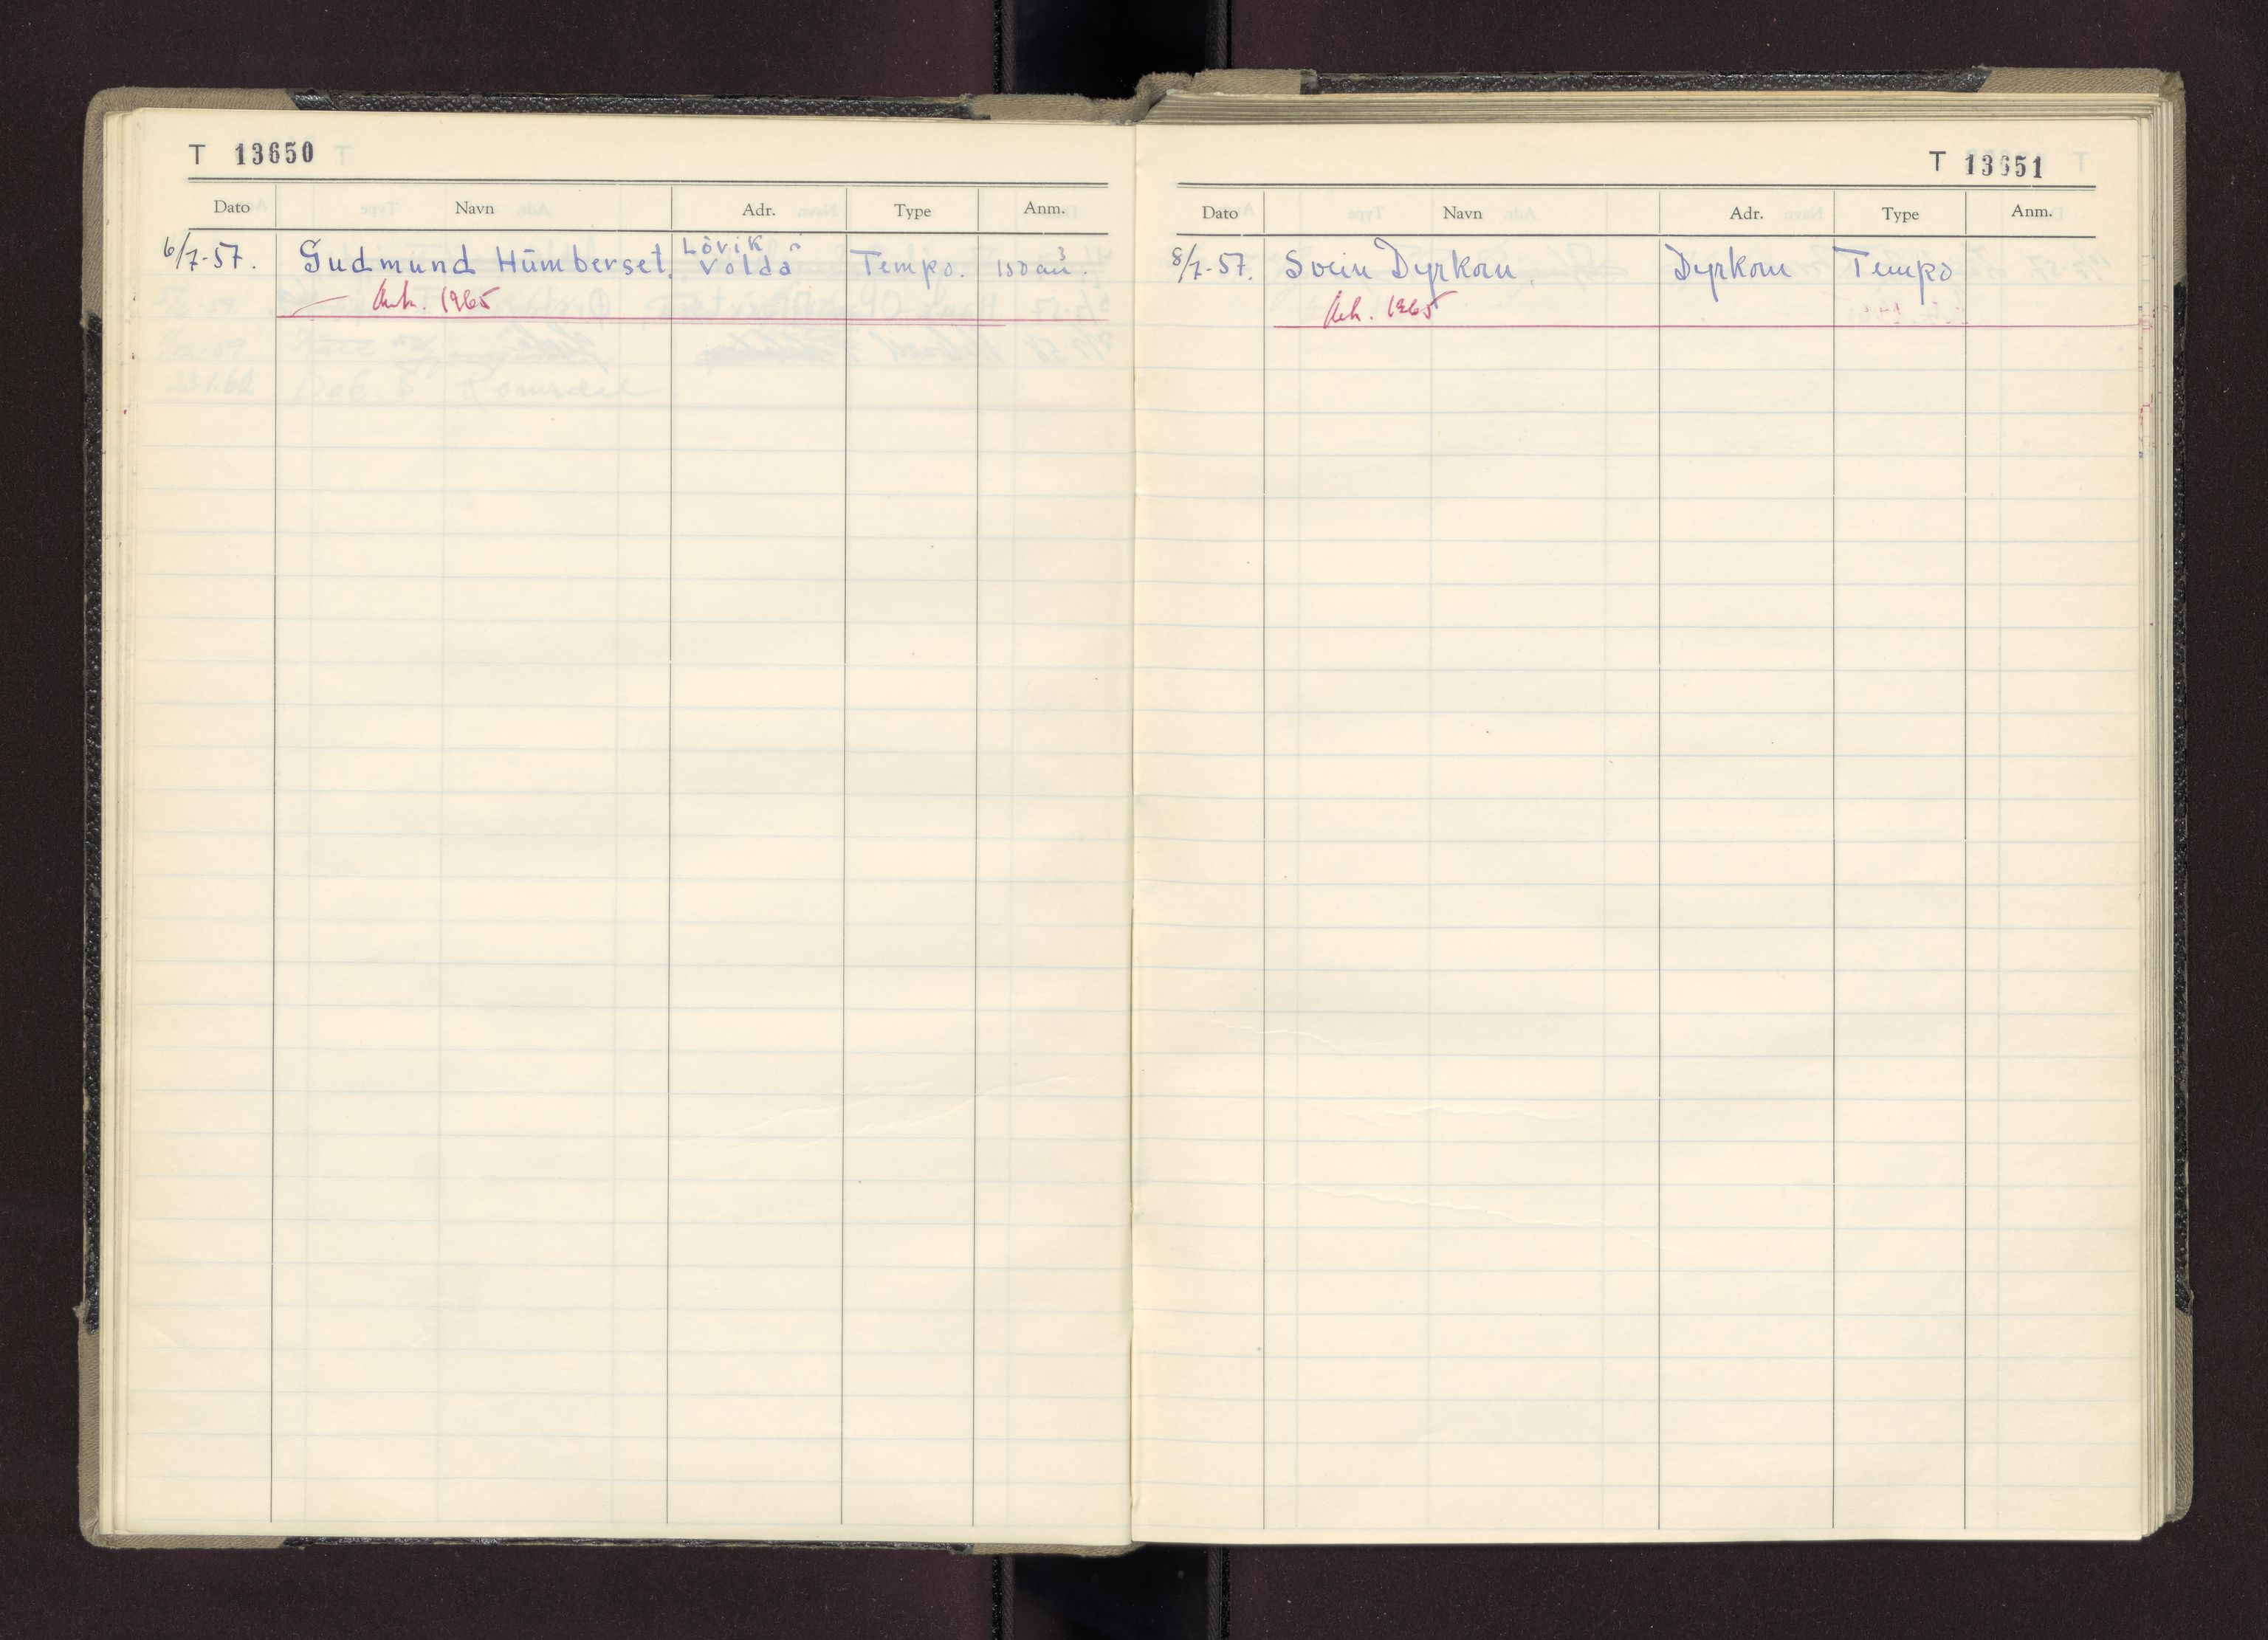 T 13650
Dato Navn Adr. Type Anm.
Lövik i
6/7-57. Gudmund Humberset. Volda Tempo.
1965
T 13651
Dato Navn Adr. Type Anm.
8/7-57. Svein Dyrkorn Dyrkorn Tempo
1965